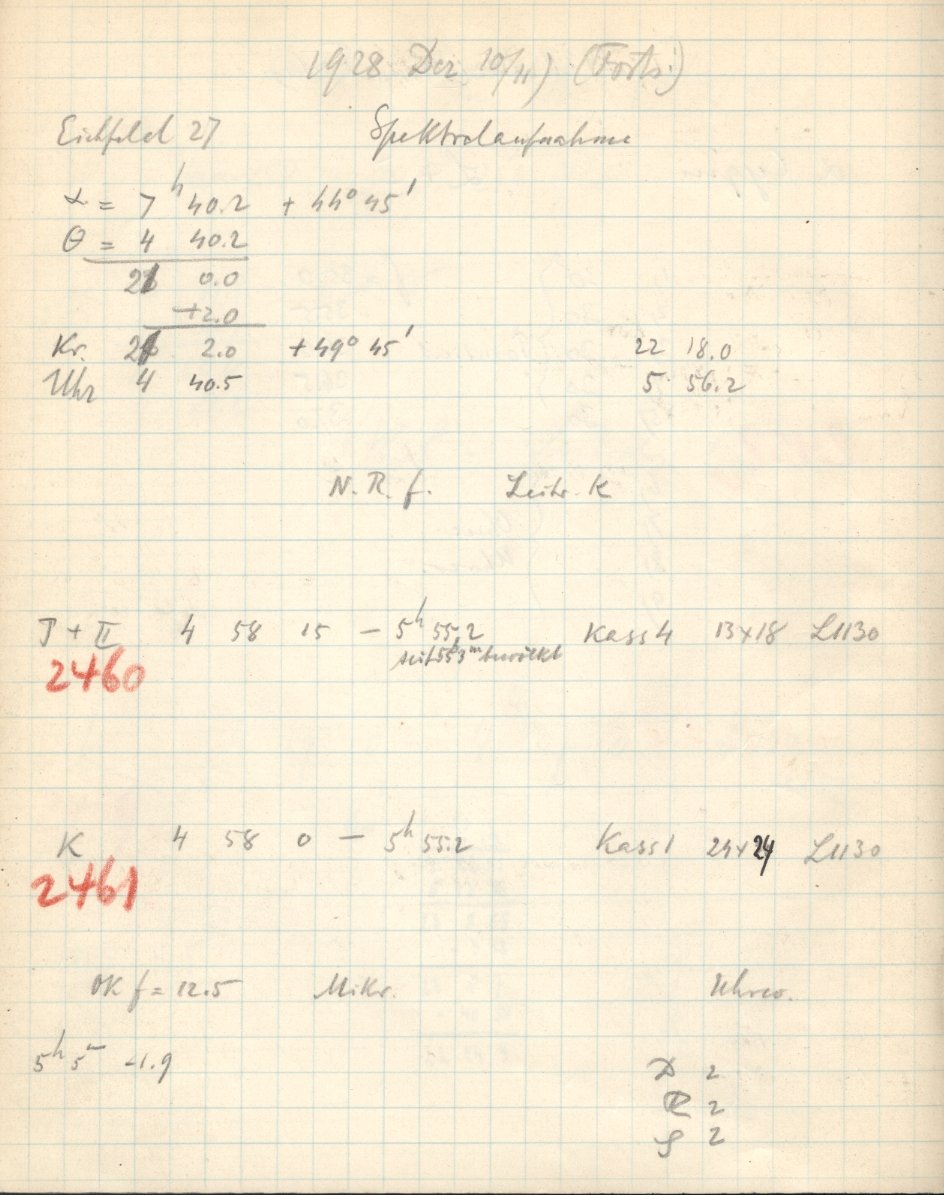 1928 Dez 10/11) (Forts.)
Eichfeld 27 Spektralaufnahme
α = 7h 40.2 + 44° 45'
θ = 4 40.2
21 0.0
+2.0
Kr. 21 2.0 + 49° 45' 22 18.0
Uhr 4 40.5 5 56.2
N. R. f. Leitr. K
I + II 4 58 15 – 5h 55.2 Kass 4 13x18 L1130
seit bewölkt
2460
K 4 58 0 – 5h 55.2 Kass 1 24x24 L1130
2461
OK f = 12.5 Mikr. Uhrw.
5h 5m -1.9
D 2
R 2
S 2